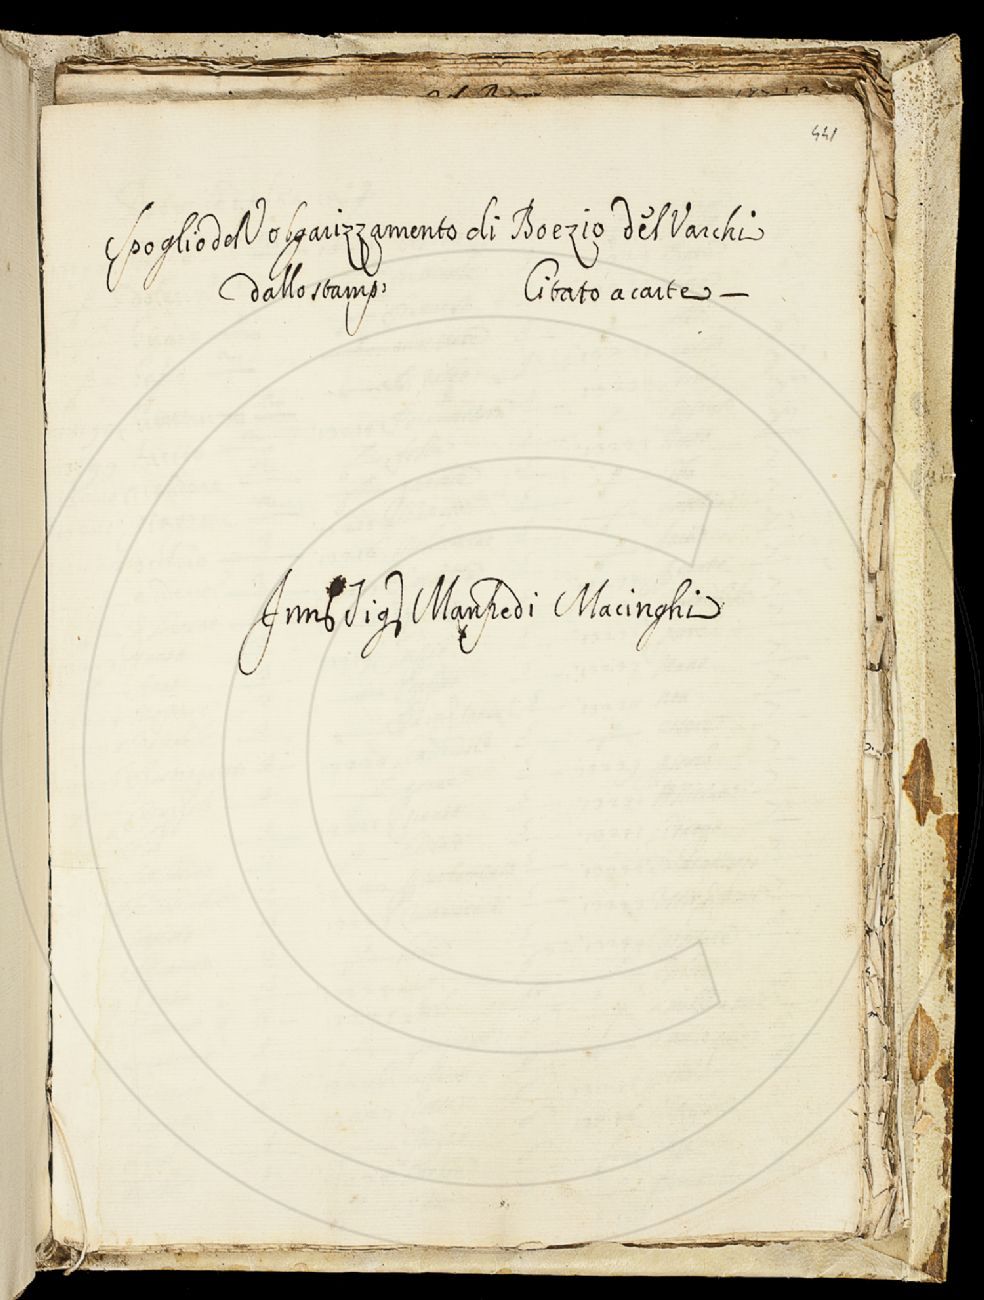 441
Spoglio del Volgarizzamento di Boezio del Varchi
dallo stamp: Citato a carte —
Sig Manfredi Macinghi